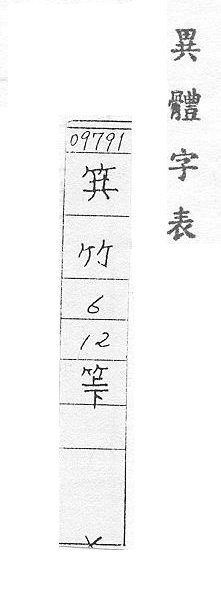 異體字表
09791
竹
6
12